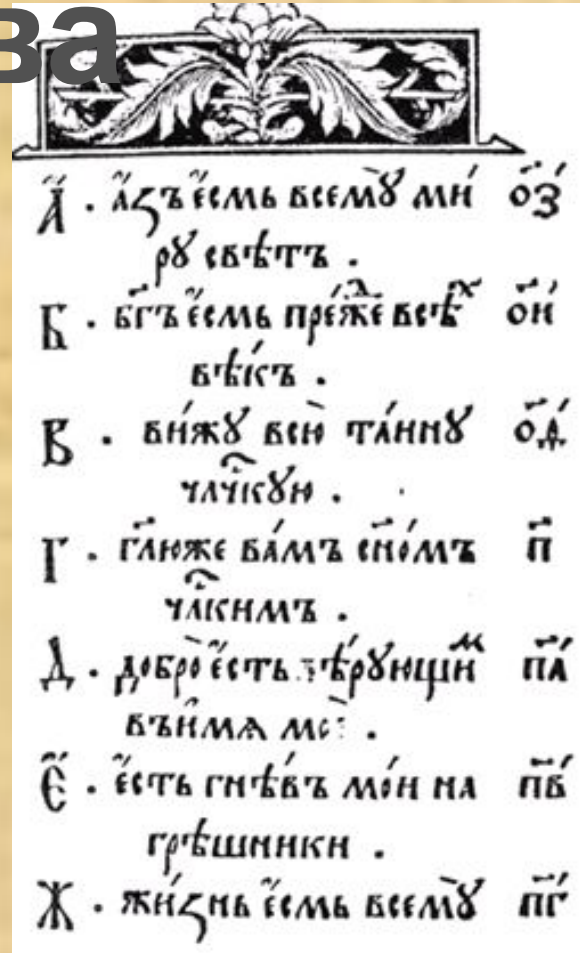 ва
А҆҃ . а҆́зъ є҆́смь всемꙋ̀ ми́ о҃з
рꙋ свѣ́тъ .
Б . бг҃ъ є҆́смь пре́жⷣе всѣⷯ о҃и
вѣ́къ .
В . ви́жꙋ всю̀ та́инꙋ о҃ѳ
члч҃кꙋю .
Г . гл҃юже ва́мъ сн҃о́мъ п҃
чл҃кимъ .
Д . добро̀ є҆́сть вѣ́рꙋющиⷨ п҃а
въи́мѧ моѐ .
Є҆ . є҆́сть гнѣ́въ мо́и на п҃в
грѣшники .
Ж . жи́знь є҆́смь всемꙋ̀ п҃г